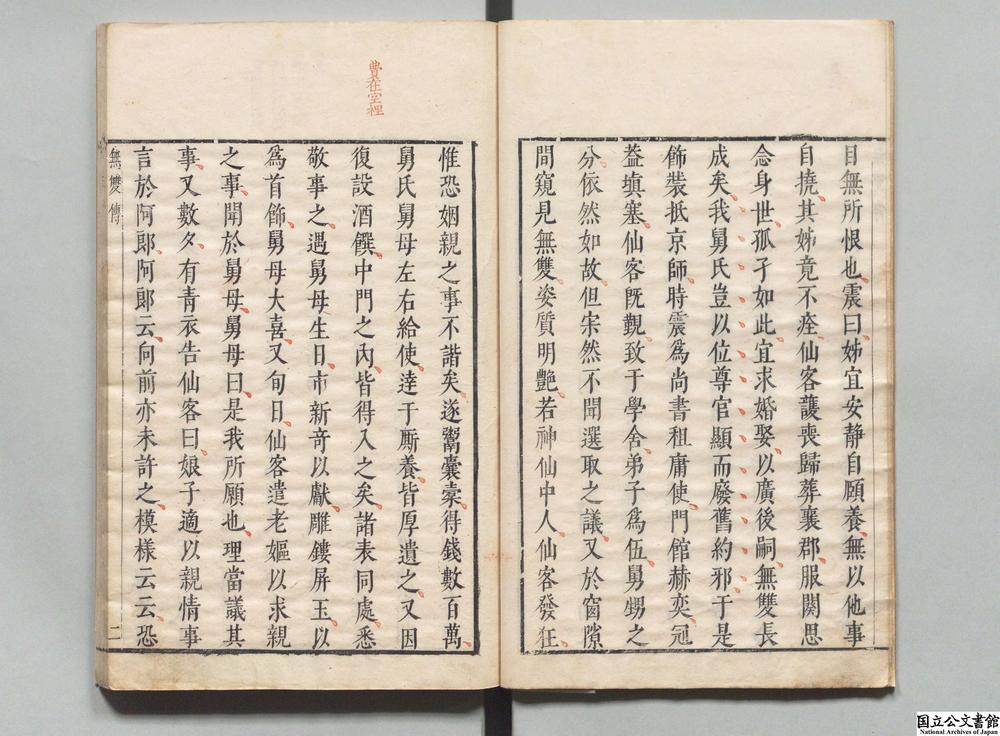 目無所恨也震曰姊宜安靜自頤養無以他事
自撓其姊竟不痊仙客護喪歸葬襄鄧服闋思
念身世孤孑如此宜求婚娶以廣後嗣無雙長
成矣我舅氏豈以位尊官顯而廢舊約邪于是
飾裝抵京師時震爲尚書租庸使門館赫奕冠
蓋填塞仙客旣覲致于學舍弟子爲伍舅甥之
分依然如故但宋然不聞選取之議又於窗隙
間窺見無雙姿質明艷若神仙中人仙客發狂
惟恐姻親之事不諧矣遂鬻囊橐得錢數百萬
舅氏舅母左右給使達于厮養皆厚遺之又因
復設酒饌中門之內皆得入之矣諸表同處悉
敬事之遇舅母生日市新奇以獻雕鏤屏玉以
爲首飾舅母大喜又旬日仙客遣老嫗以求親
之事聞於舅母舅母曰是我所願也理當議其
事又數夕有青衣告仙客曰娘子適以親情事
言於阿郎阿郎云向前亦未許之模樣云云恐
無雙傳
二
費在空裡
国立公文書館
National Archives of Japan